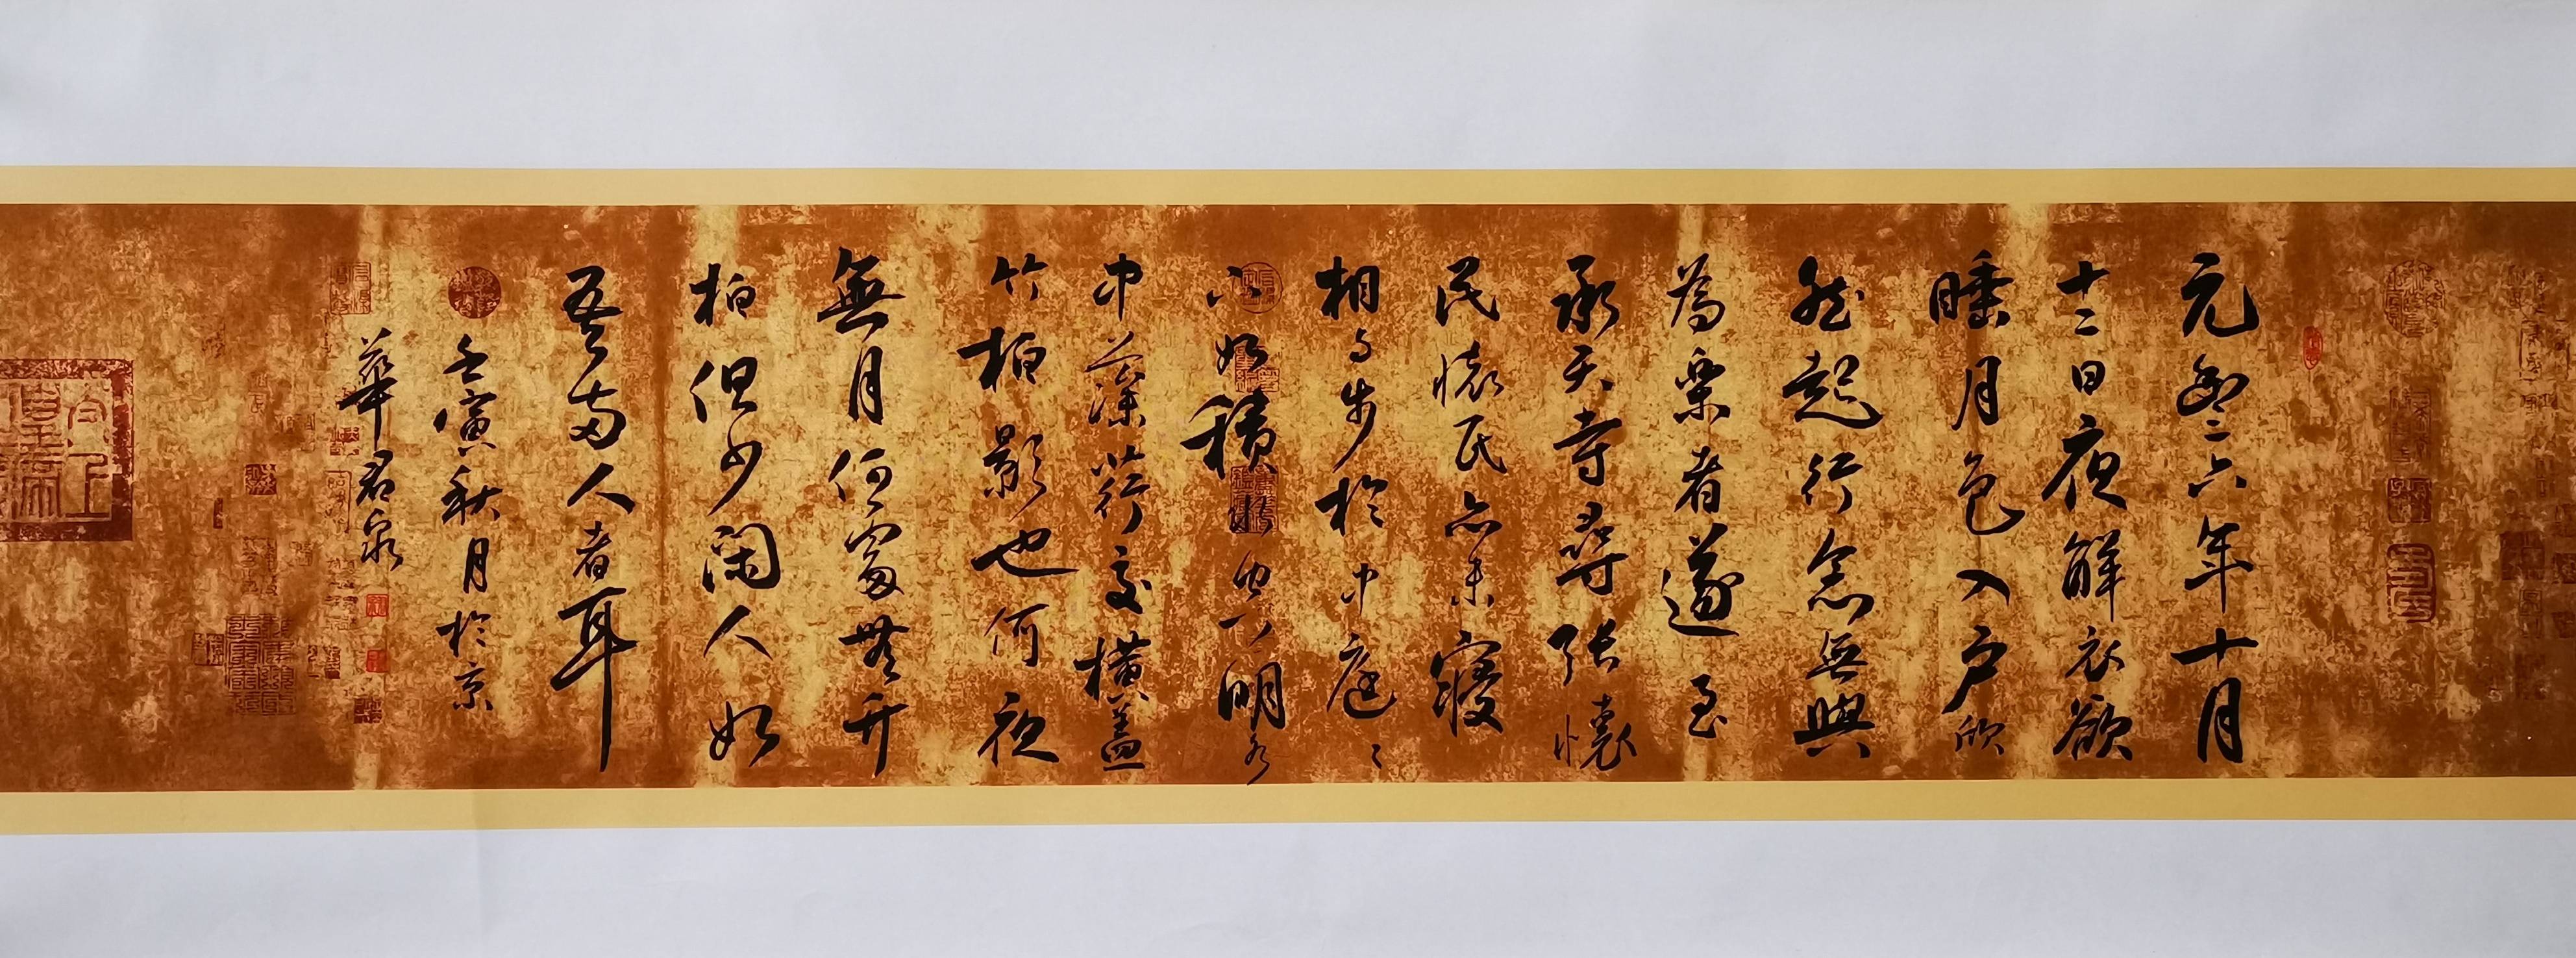 元豐六年十月
十二日夜解衣欲
睡月色入户欣
然起行念無與
為樂者遂至
承天寺尋張懷
民懷民亦未寢
相与步於中庭々
下如積水空明水
中藻荇交橫蓋
竹柏影也何夜
無月何處無竹
柏但少閑人如
吾兩人者耳
壬寅秋月於京
華君泉